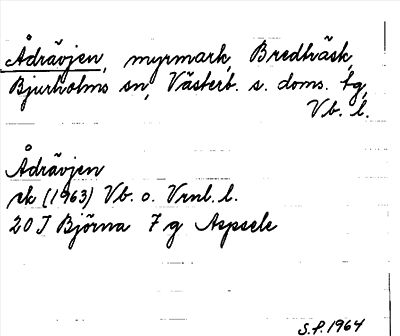 Ådrävjen, myrmark, Bredträsk,
Bjurholms sn, Västerb. s. doms. tg,
Vb. l.
Ådrävjen
rk (1963) Vb. o. Vrnl. l.
20 J Björna 7 g Aspsele
S.f. 1964